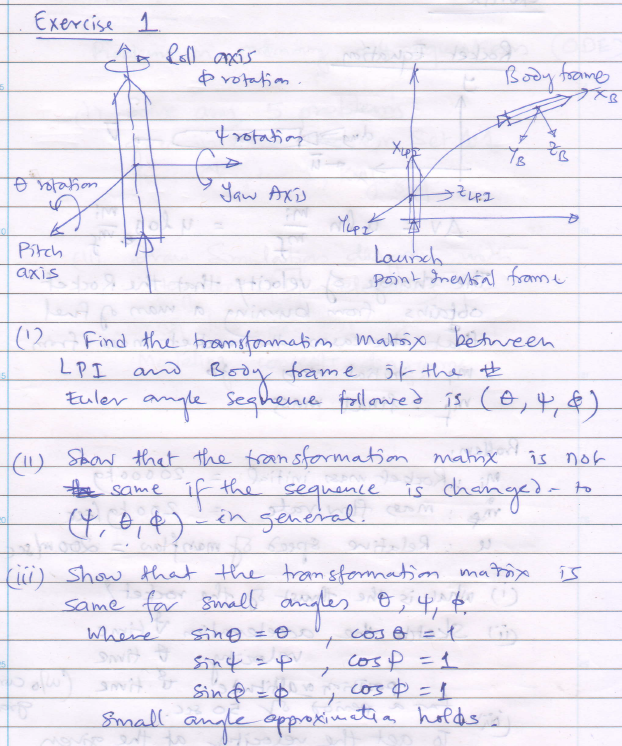 Exercise 1
Roll axis
Φ rotation.
Ψ rotation
Yaw Axis
θ rotation
Pitch
axis
Body frame
X_B
Y_B
Z_B
X_LPI
Z_LPI
Y_LPI
Launch
point Inertial frame
(i) Find the transformation matrix between
LPI and Body frame if the
Euler angle sequence followed is (θ, Ψ, Φ)
(ii) Show that the transformation matrix is not
same if the sequence is changed - to
(Ψ, θ, Φ) - in general.
(iii) Show that the transformation matrix is
same for small angles θ, Ψ, Φ.
where sinθ = θ , cosθ = 1
sinΨ = Ψ , cosΨ = 1
sinΦ = Φ , cosΦ = 1
Small angle approximation holds.